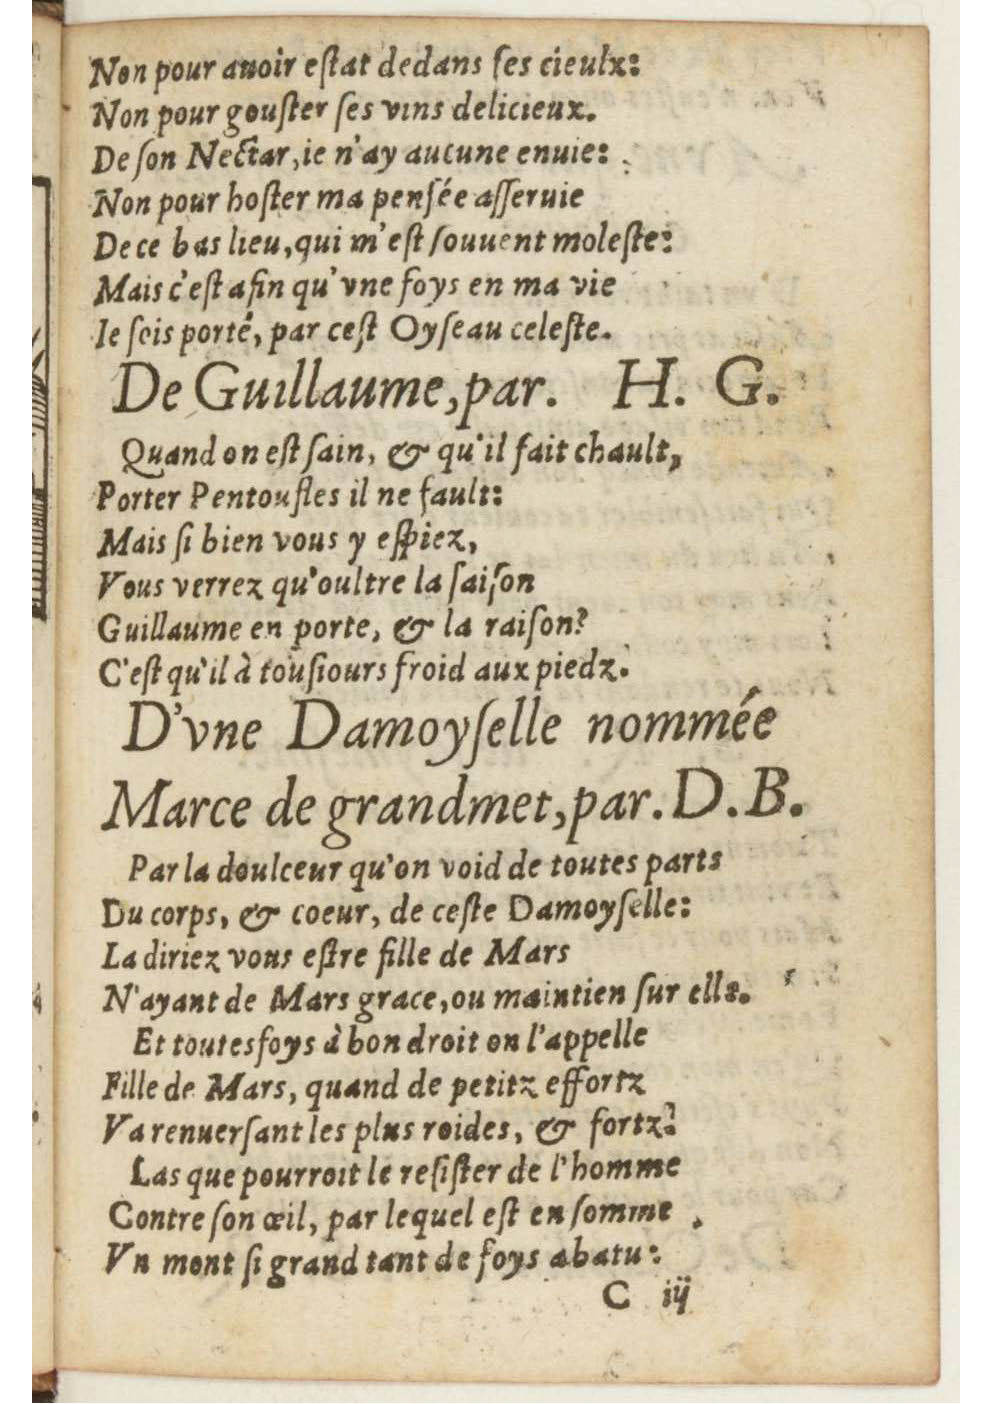 Non pour auoir eſtat dedans ſes cieulx:
Non pour gouſter ſes vins delicieux.
De ſon Nectar, ie n'ay aucune enuie:
Non pour hoſter ma penſée aſſeruie
De ce bas lieu, qui m'eſt ſouuent moleſte:
Mais c'eſt afin qu'vne foys en ma vie
Ie ſois porté, par ceſt Oyſeau celeſte.
De Guillaume, par. H. G.
Quand on eſt ſain, & qu'il fait chault,
Porter Pentoufles il ne fault:
Mais ſi bien vous y eſpiez,
Vous verrez qu'oultre la ſaiſon
Guillaume en porte, & la raiſon?
C'eſt qu'il à touſiours froid aux piedz.
D'vne Damoyſelle nommée
Marce de grandmet, par. D. B.
Par la doulceur qu'on void de toutes parts
Du corps, & coeur, de ceſte Damoyſelle:
La diriez vous eſtre fille de Mars
N'ayant de Mars grace, ou maintien ſur elle.
Et toutesfoys à bon droit on l'appelle
Fille de Mars, quand de petitz effortz
Va renuerſant les plus roides, & fortz?
Las que pourroit le reſiſter de l'homme
Contre ſon œil, par lequel eſt en ſomme
Vn mont ſi grand tant de foys abatu:
C iij